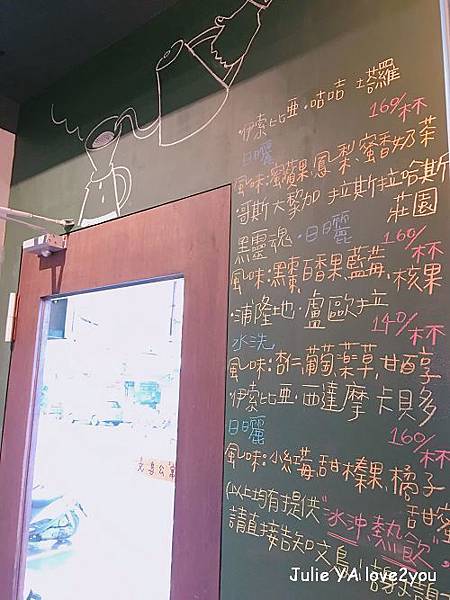 ·伊索比亞·咕咕 塔羅
160/杯
日曬
風味:蜜蘋果,鳳梨,蜜香奶茶
·哥斯大黎加 拉斯拉哈斯
莊園
黑靈魂·日曬
160/杯
風味:黑棗,百香果,藍莓,核果
·浦隆地·盧歐拉
140/杯
水洗
風味:杏仁,葡萄,菸草,甘百享
伊索比亞·西達摩 卡貝多
160/杯
日曬
風味:小紅莓,甜榛果,橘子
甜蜜
(以上均有提供"冰沖,熱飲"
請直接告知文鳥公
Julie YA love2you